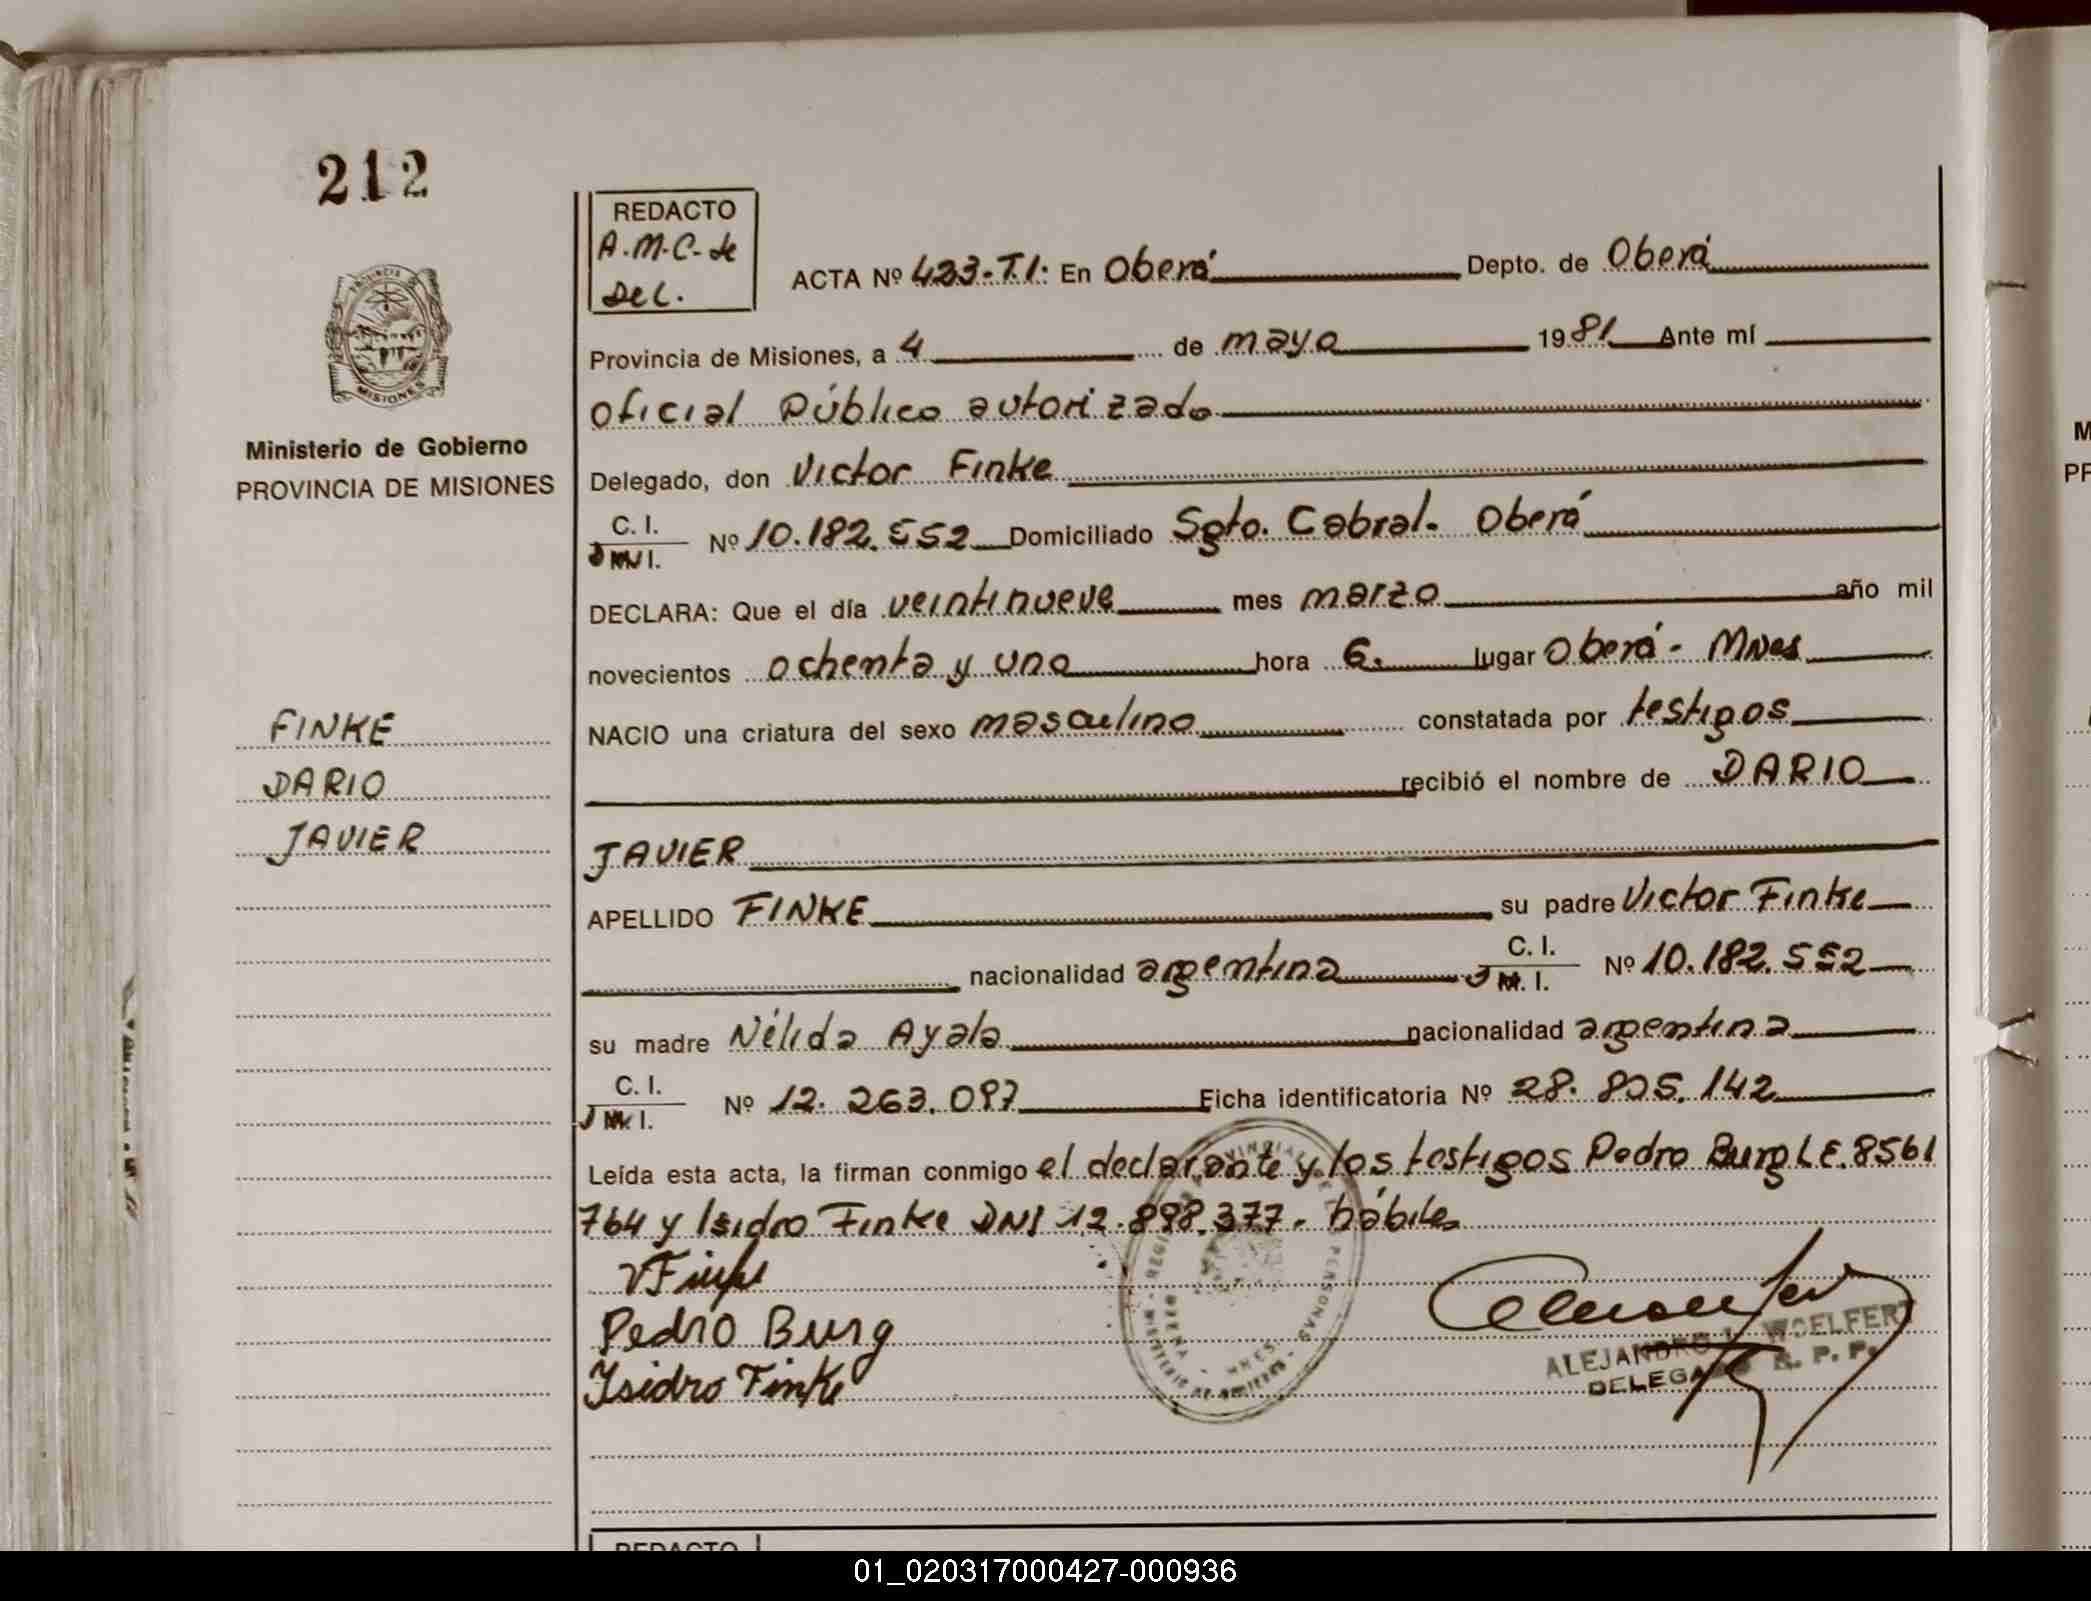 212
REDACTO
A.M.C. de
Del.
ACTA Nº 423-T.I: En Oberá Depto. de Oberá
Provincia de Misiones, a 4 de mayo 1981 Ante mí
oficial Público autorizado
Delegado, don Victor Finke
C. I.
D N I. Nº 10.182.552 Domiciliado Sgto. Cabral. Oberá
DECLARA: Que el día veintinueve mes marzo año mil
novecientos ochenta y uno hora 6. lugar Oberá - Mnes
NACIO una criatura del sexo masculino constatada por testigos
recibió el nombre de DARIO
JAVIER
APELLIDO FINKE su padre Victor Finke
nacionalidad argentina C. I. Nº 10.182.552
su madre Nélida Ayala nacionalidad argentina
C. I. Nº 12.263.097 Ficha identificatoria Nº 28.805.142
Leída esta acta, la firman conmigo el declarante y los testigos Pedro Burg L E. 8561
764 y Isidro Finke DNI 12.898.377. hábiles
VFinke
Pedro Burg
Isidro Finke
ALEJANDRO WOELFERT
DELEGADO R. P. P.
PROVINCIA
MISIONES
Ministerio de Gobierno
PROVINCIA DE MISIONES
FINKE
DARIO
JAVIER
REDACTO
01_020317000427-000936